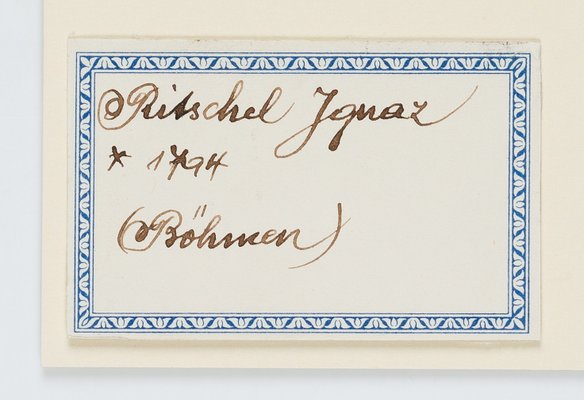 Ritschel Ignaz
* 1794
(Böhmen)